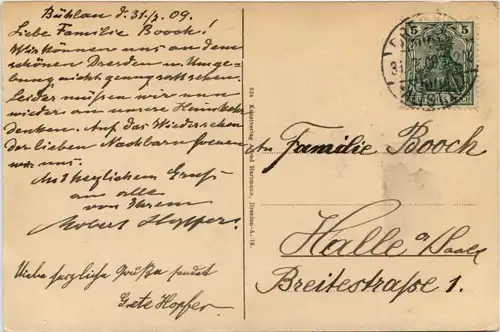 Bühlau d. 31/7. 09.
Liebe Familie Booch!
Wir können uns an dem
schönen Dresden u. Umge-
bung nicht genug satt sehen.
Leider müssen wir nun
wieder an unsere Heimkehr
denken. Auf das Wiedersehen
der lieben Nachbarn freuen
wir uns.
Mit herzlichem Gruß
an alle
von Ihrem
Robert Hopfer.
Viele herzliche Grüße sendet
Hopfer.
5
5
Dresden-A., 16.
An Familie Booch
Halle a/Saale
Breitestraße 1.